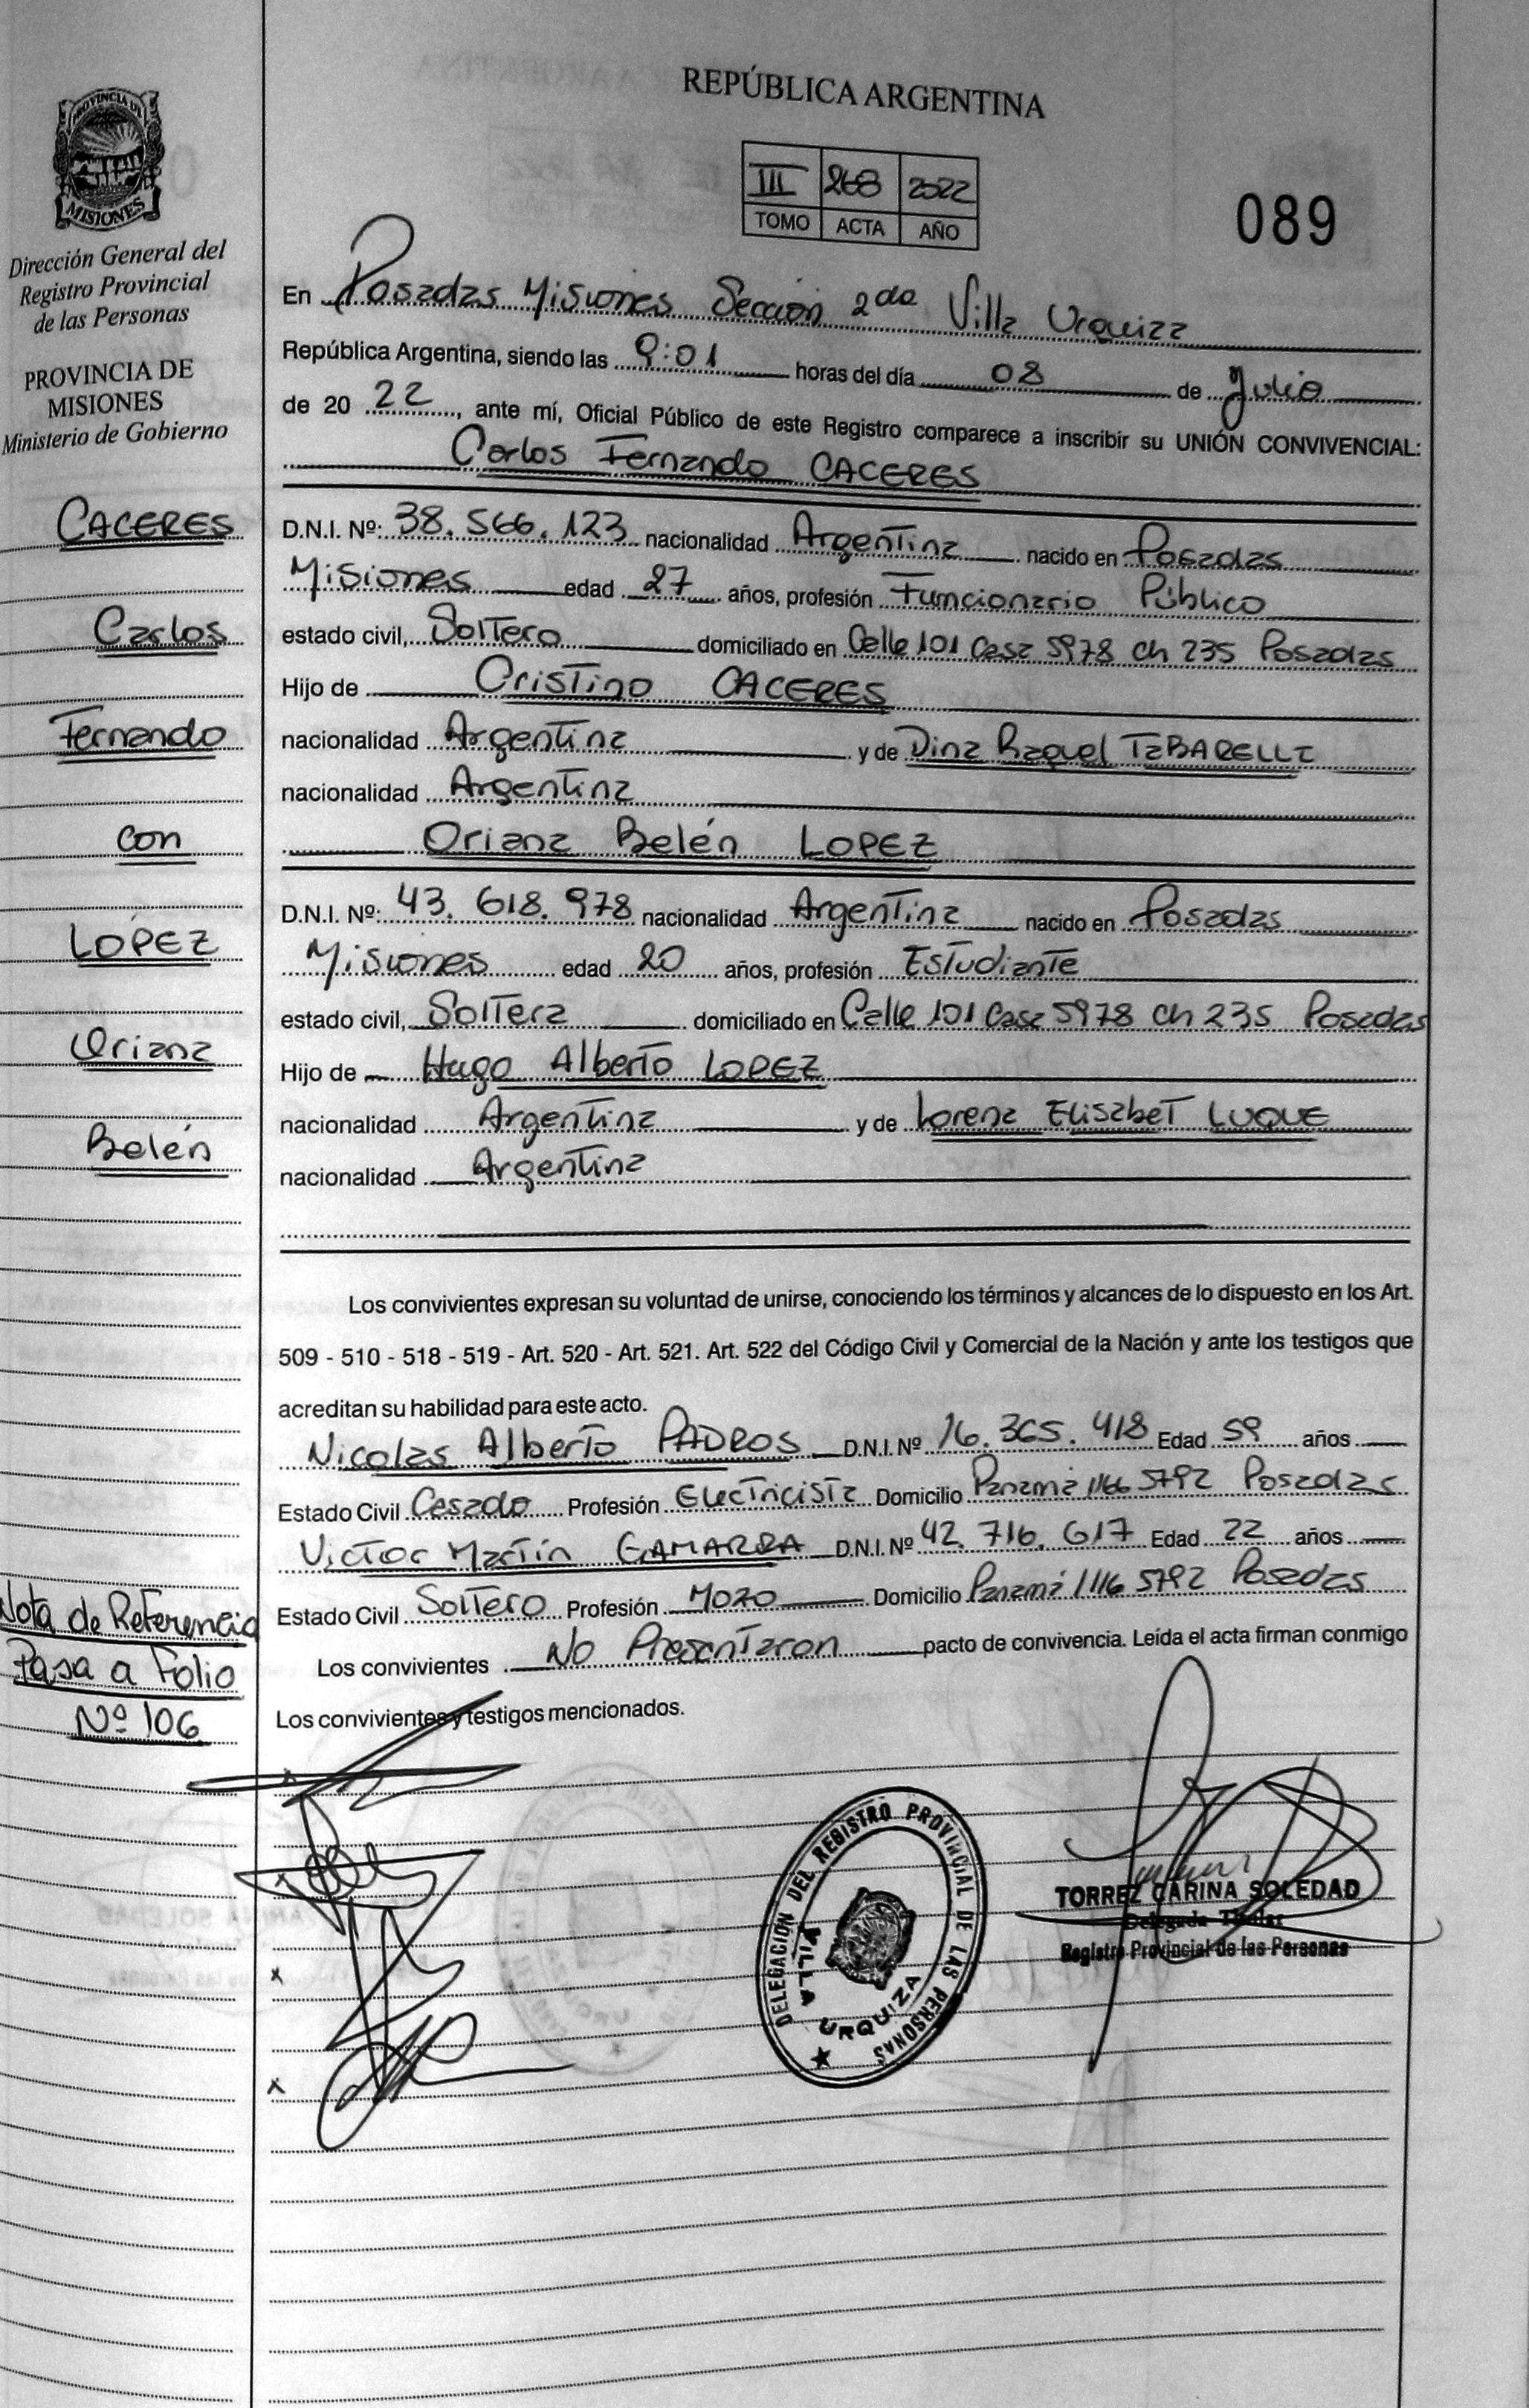 REPÚBLICA ARGENTINA
III 268 2022
TOMO ACTA AÑO
089
PROVINCIA DE
MISIONES
Dirección General del
Registro Provincial
de las Personas
PROVINCIA DE
MISIONES
Ministerio de Gobierno
CACERES
Carlos
Fernando
con
LOPEZ
Oriana
Belén
Nota de Referencia
Pasa a Folio
Nº 106
En Posadas Misiones Sección 2da Villa Urquiza
República Argentina, siendo las 9:01 horas del día 08 de Julio
de 20 22, ante mí, Oficial Público de este Registro comparece a inscribir su UNIÓN CONVIVENCIAL:
Carlos Fernando CACERES
D.N.I. Nº: 38.566.123 nacionalidad Argentina nacido en Posadas
Misiones edad 27 años, profesión Funcionario Público
estado civil, Soltero domiciliado en Calle 101 Casa 5978 ch 235 Posadas
Hijo de Cristino CACERES
nacionalidad Argentina y de Dina Raquel TABARELLI
nacionalidad Argentina
Oriana Belén LOPEZ
D.N.I. Nº: 43.618.978 nacionalidad Argentina nacido en Posadas
Misiones edad 20 años, profesión Estudiante
estado civil, Soltera domiciliado en Calle 101 Casa 5978 ch 235 Posadas
Hijo de Hugo Alberto LOPEZ
nacionalidad Argentina y de Lorena Elisabet LUQUE
nacionalidad Argentina
Los convivientes expresan su voluntad de unirse, conociendo los términos y alcances de lo dispuesto en los Art.
509 - 510 - 518 - 519 - Art. 520 - Art. 521. Art. 522 del Código Civil y Comercial de la Nación y ante los testigos que
acreditan su habilidad para este acto.
Nicolas Alberto PADROS D.N.I. Nº 16.365.418 Edad 59 años
Estado Civil Casado Profesión Electricista Domicilio Panamá 1166 5792 Posadas
Victor Martín GAMARRA D.N.I. Nº 42.716.617 Edad 22 años
Estado Civil Soltero Profesión Mozo Domicilio Panamá 1116 5792 Posadas
Los convivientes No Presentaron pacto de convivencia. Leída el acta firman conmigo
Los convivientes y testigos mencionados.
DELEGACION DEL REGISTRO PROVINCIAL DE LAS PERSONAS
VILLA URQUIZA
TORREZ CARINA SOLEDAD
Delegada Titular
Registro Provincial de las Personas